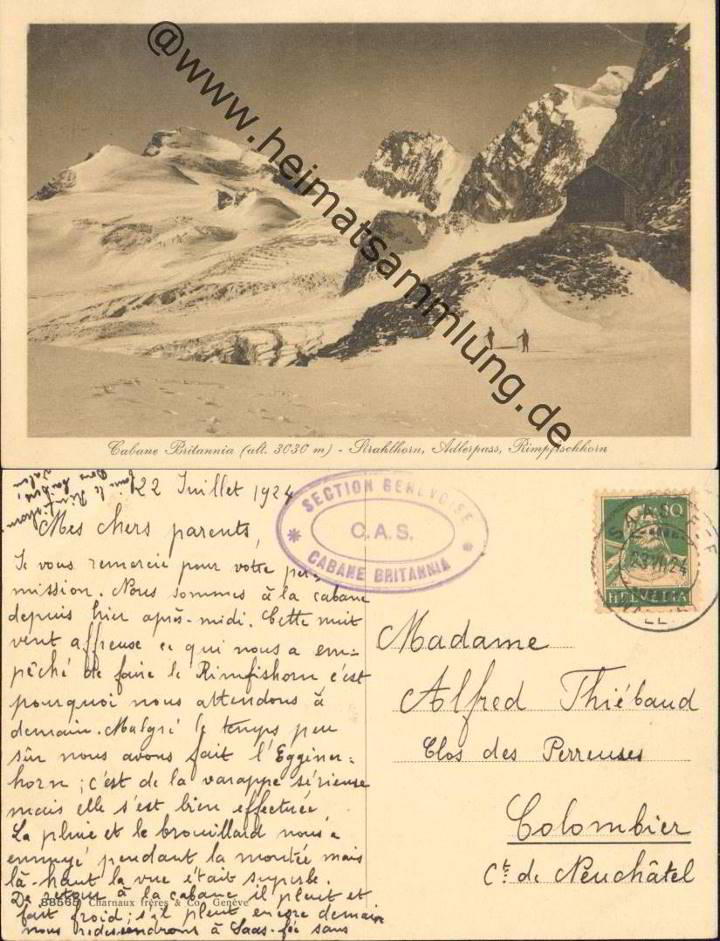 @www.heimatsammlung.de
Cabane Britannia (alt. 3030 m) - Strahlhorn, Adlerpass, Rimpfischhorn
22 Juillet 1924
Mes chers parents,
Je vous remercie pour votre per-
mission. Nous sommes à la cabane
depuis hier après-midi. Cette nuit
vent affreuse ce qui nous a em-
pêché de faire le Rimfishorn c'est
pourquoi nous attendons à
demain. Malgré le temps peu
sûr nous avons fait l'Egginer-
horn; c'est de la varappe sérieuse
mais elle s'est bien effectuée
La pluie et le brouillard nous a
ennuyé pendant la montée mais
là-haut la vue était superbe.
De retour à la cabane il pleut et
fait froid; s'il pleut encore demain
nous redescendrons à Saas-fée sans
faire le Rimfishorn
SECTION GENEVOISE
C.A.S.
CABANE BRITANNIA
30
23.VII.24
HELVETIA
Madame
Alfred Thiébaud
Clos des Perreuses
Colombier
Ct. de Neuchâtel
88565 Charnaux frères & Co., Genève